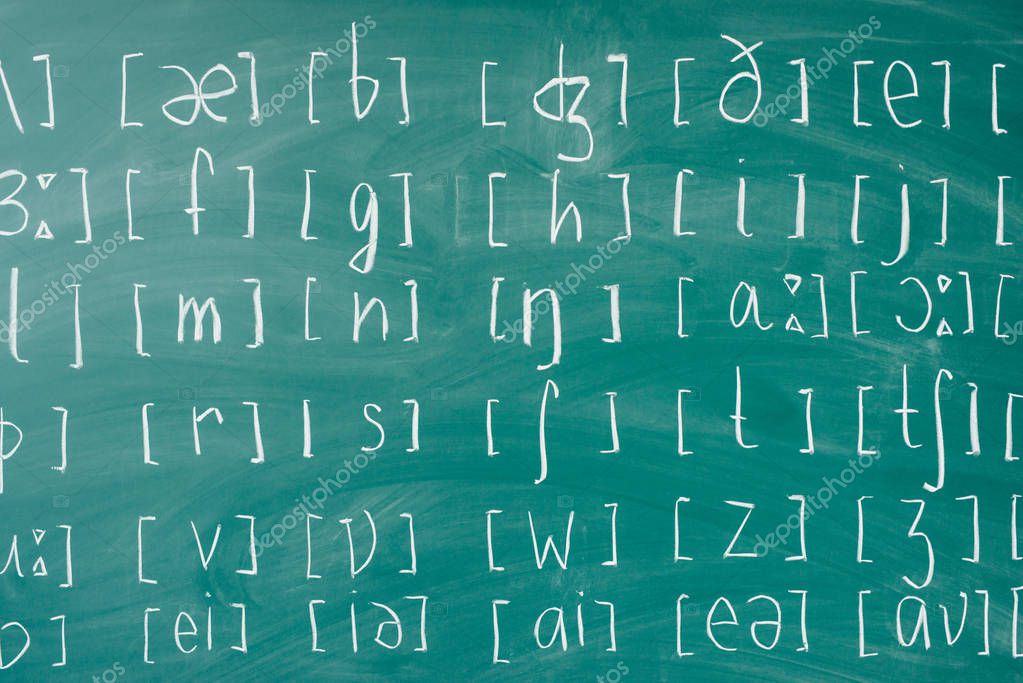 ] [æ] [b] [ʤ] [ð] [e] [
ɜː] [f] [g] [h] [i] [j] [
l] [m] [n] [ŋ] [aː] [ɔː] [
p] [r] [s] [ʃ] [t] [tʃ] [
uː] [v] [ʋ] [w] [z] [ʒ] [
] [ei] [iə] [ai] [eə] [aʋ] [
depositphotos